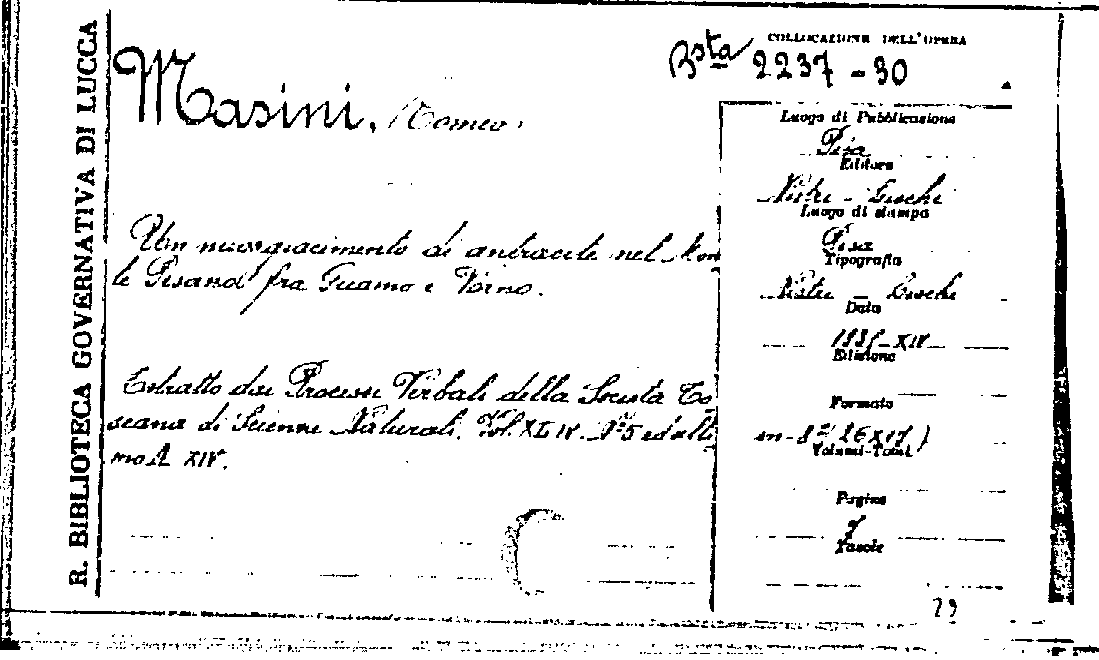 R. BIBLIOTECA GOVERNATIVA DI LUCCA
Masini, Romeo.
COLLOCAZIONE DELL'OPERA
Bsta 2237-30
Un nuovo giacimento di antracite nel Mon
te Pisano fra Guamo e Vorno.
Estratto dai Processi Verbali della Società To
scana di Scienze Naturali. Vol. XLIV. N° 5 ed ulti
mo A XIV.
Luogo di Pubblicazione
Pisa
Editore
Nistri - Lischi
Luogo di stampa
Pisa
Tipografia
Nistri - Lischi
Data
1935-XIV
Edizione
Formato
in-8° (26x17)
Volumi-Tomi
Pagine
7
Tavole